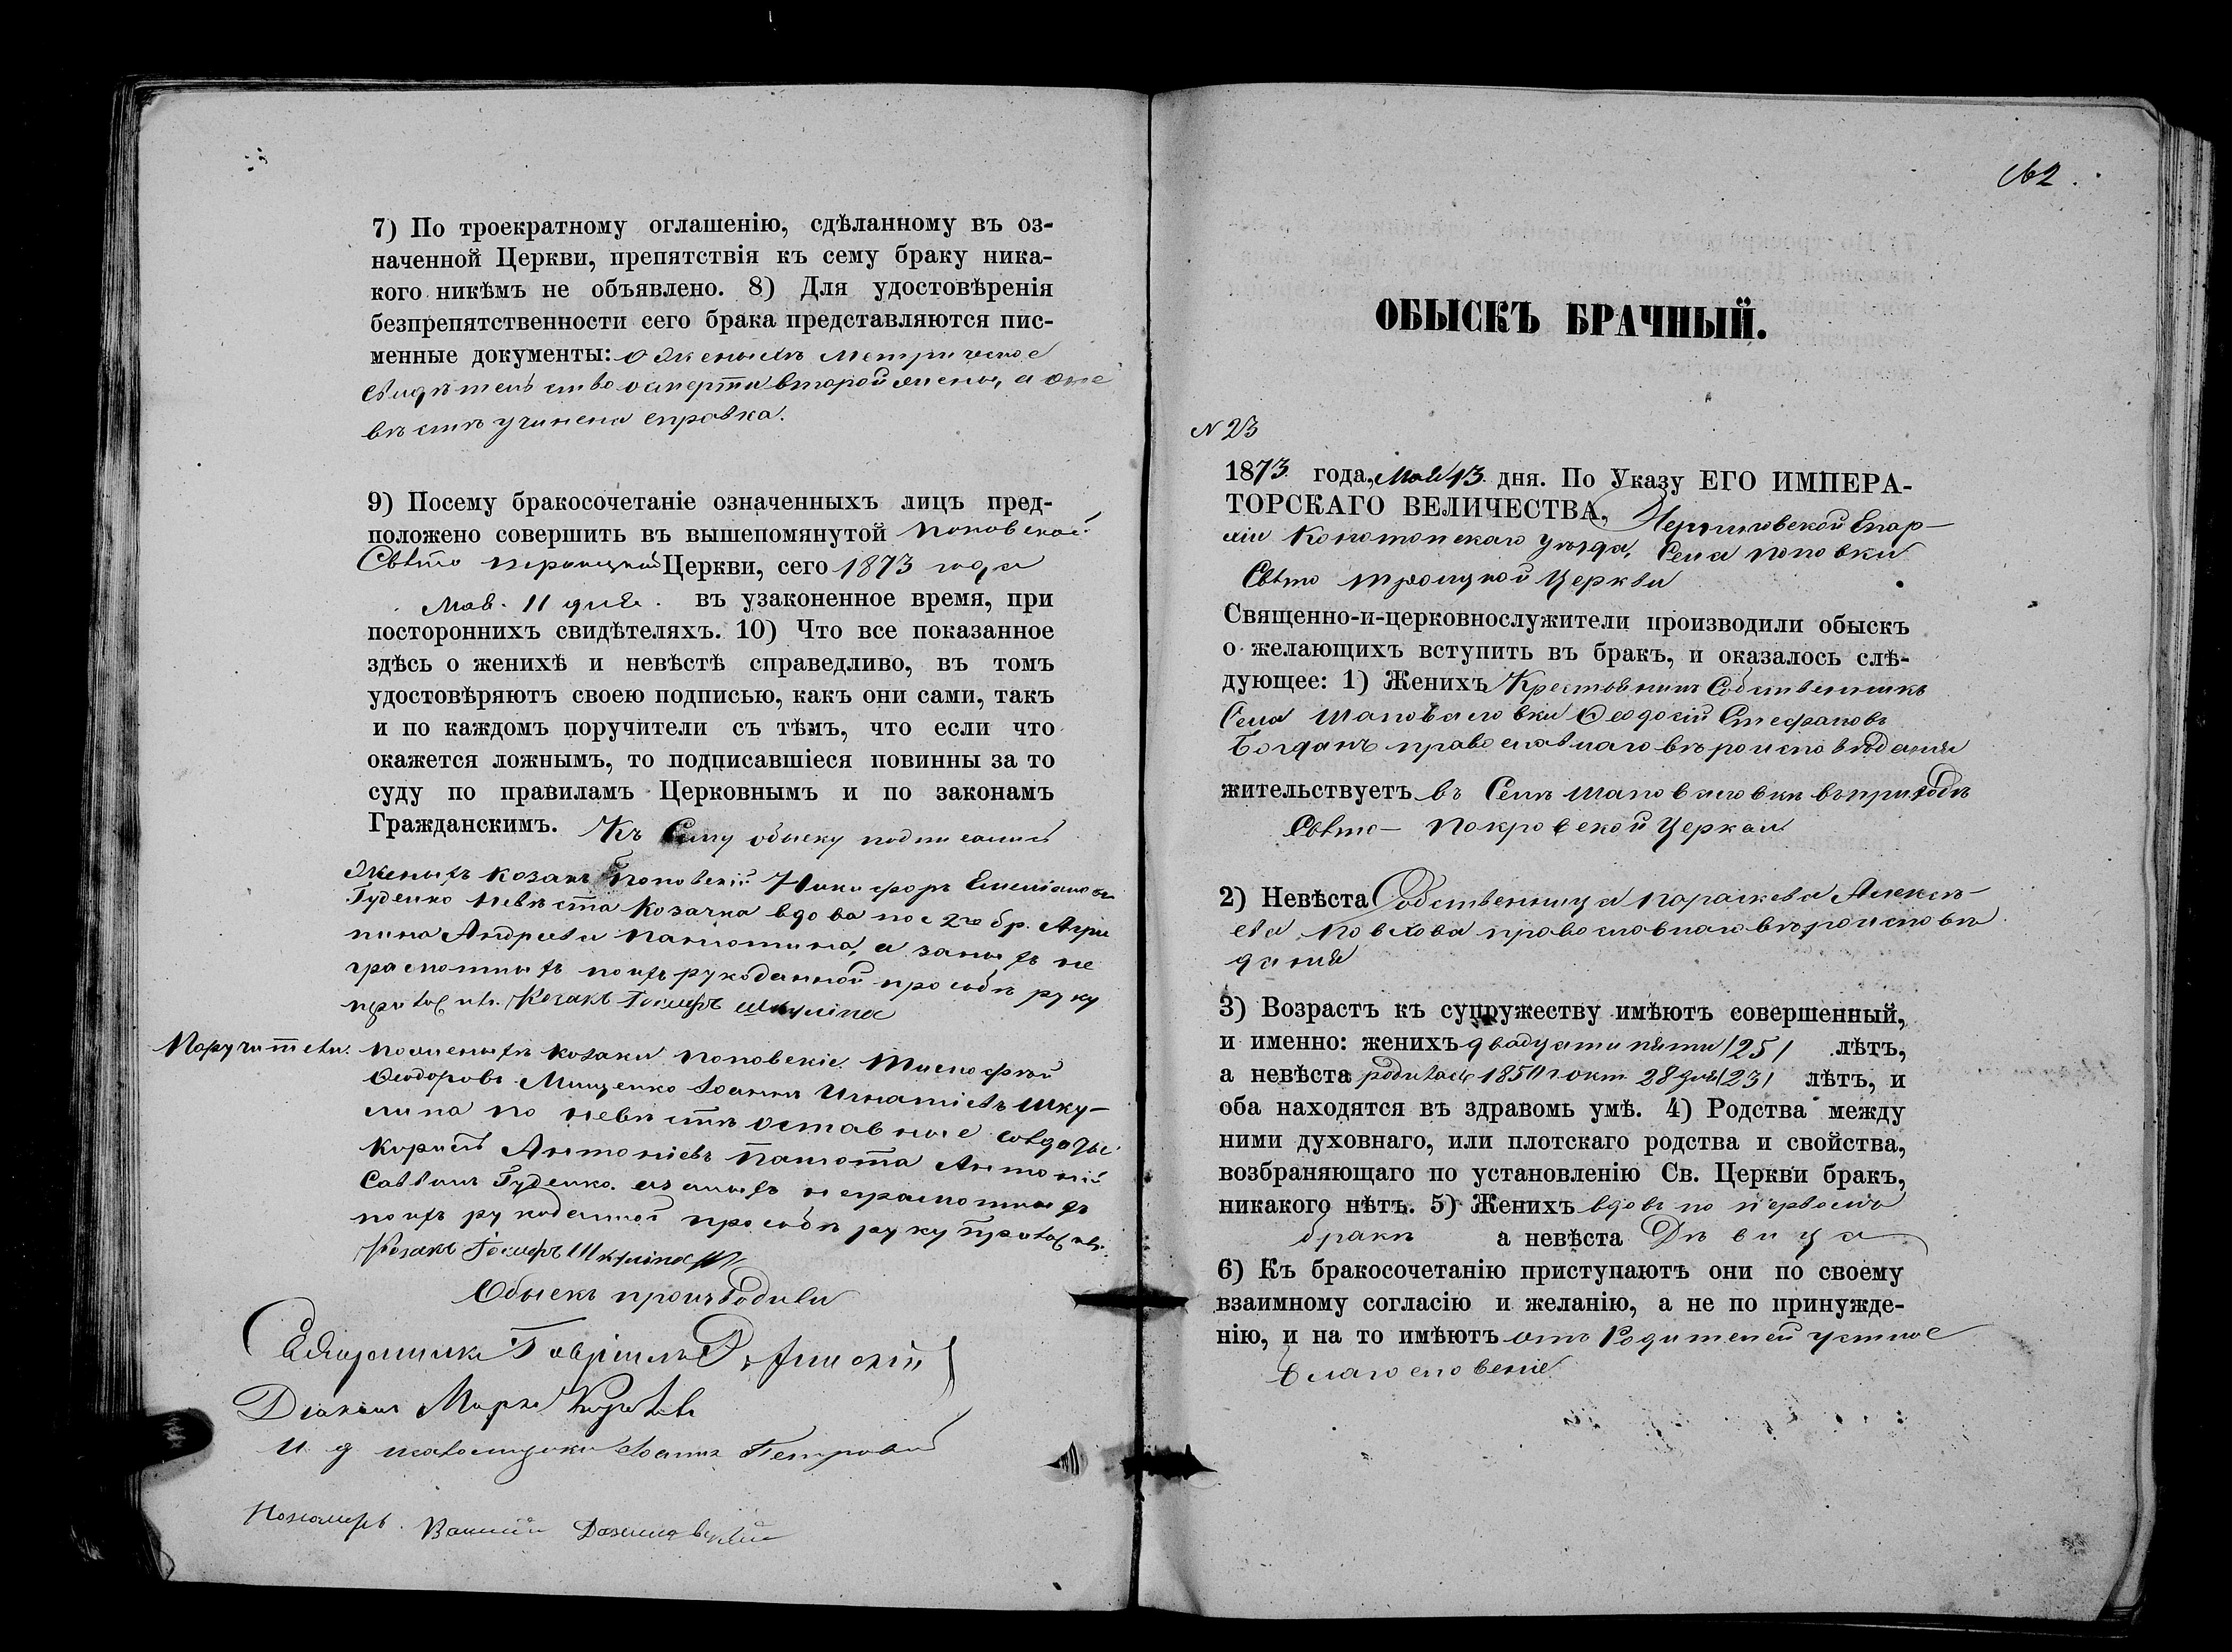 7) По троекратному оглашенію, сдѣланному въ оз-
наченной Церкви, препятствія къ сему браку ника-
кого никѣмъ не объявлено. 8) Для удостовѣренія
безпрепятственности сего брака представляются пис-
менные документы: о женихѣ метрическое
свидѣтельство о смерти второй жены, а о не
вѣстѣ учинена справка.
9) Посему бракосочетаніе означенныхъ лицъ пред-
положено совершить въ вышепомянутой Поповской
Свѣто Троицкой Церкви, сего 1873 года
Мая 11 дня. въ узаконенное время, при
постороннихъ свидѣтеляхъ. 10) Что все показанное
здѣсь о женихѣ и невѣстѣ справедливо, въ томъ
удостовѣряютъ своею подписью, какъ они сами, такъ
и по каждомъ поручители съ тѣмъ, что если что
окажется ложнымъ, то подписавшіеся повинны за то
суду по правиламъ Церковнымъ и по законамъ
Гражданскимъ. Къ сему обыску подписались
Женихъ козакъ Поповскій Никифоръ Емеліановъ
Гуденко невѣста козачка вдова по 2мъ бр. Агри
пина Андреева Панютина, а за нихъ не
грамотныхъ по ихъ рукоданной прозьбѣ руку
приложилъ. Козакъ Шкуліпа
Поручители. По женихѣ козаки Поповскіе Тимофѣй
Ѳеодоровъ Мищенко Іоаннъ Игнатіевъ Шку-
липа по невѣстѣ отставные солдаты
Кирилъ Антоніевъ Панюта Антоній
Саввинъ Гуденко. а за нихъ неграмотныхъ
по ихъ рукоданной прозьбѣ руку приложилъ
Козакъ Шкуліпа
Обыскъ производили
Священникъ Гавріилъ
Діаконъ Марко
И д псаломщика Іоаннъ Петровскій
Пономарь
162.
ОБЫСКЪ БРАЧНЫЙ.
N 23
1873 года, Мая 13 дня. По Указу ЕГО ИМПЕРА-
ТОРСКАГО ВЕЛИЧЕСТВА, Черниговской Епар-
хіи Конотопскаго уѣзда, Села Поповки
Свѣто Троицкой Церкви
Священно-и-церковнослужители производили обыскъ
о желающихъ вступить въ бракъ, и оказалось слѣ-
дующее: 1) Женихъ Крестьянинъ Собственникъ
Села Шаповаловки Ѳеодосій Стефановъ
Богданъ православнаго вѣроисповѣданія
жительствуетъ въ Селѣ Шаповаловкѣ въ приходѣ
Свѣто-Покровской Церкви
2) Невѣста Собственница Параскева Алексѣ-
ева Повхова православнаго вѣроисповѣ
данія
3) Возрастъ къ супружеству имѣютъ совершенный,
и именно: женихъ двадцати пяти /25/ лѣтъ,
а невѣста родилась 1850 г. окт. 28 дня /23/ лѣтъ, и
оба находятся въ здравомъ умѣ. 4) Родства между
ними духовнаго, или плотскаго родства и свойства,
возбраняющаго по установленію Св. Церкви бракъ,
никакого нѣтъ. 5) Женихъ вдовъ по первомъ
бракѣ а невѣста Дѣвица
6) Къ бракосочетанію приступаютъ они по своему
взаимному согласію и желанію, а не по принужде-
нію, и на то имѣютъ отъ Родителей устное
благословеніе